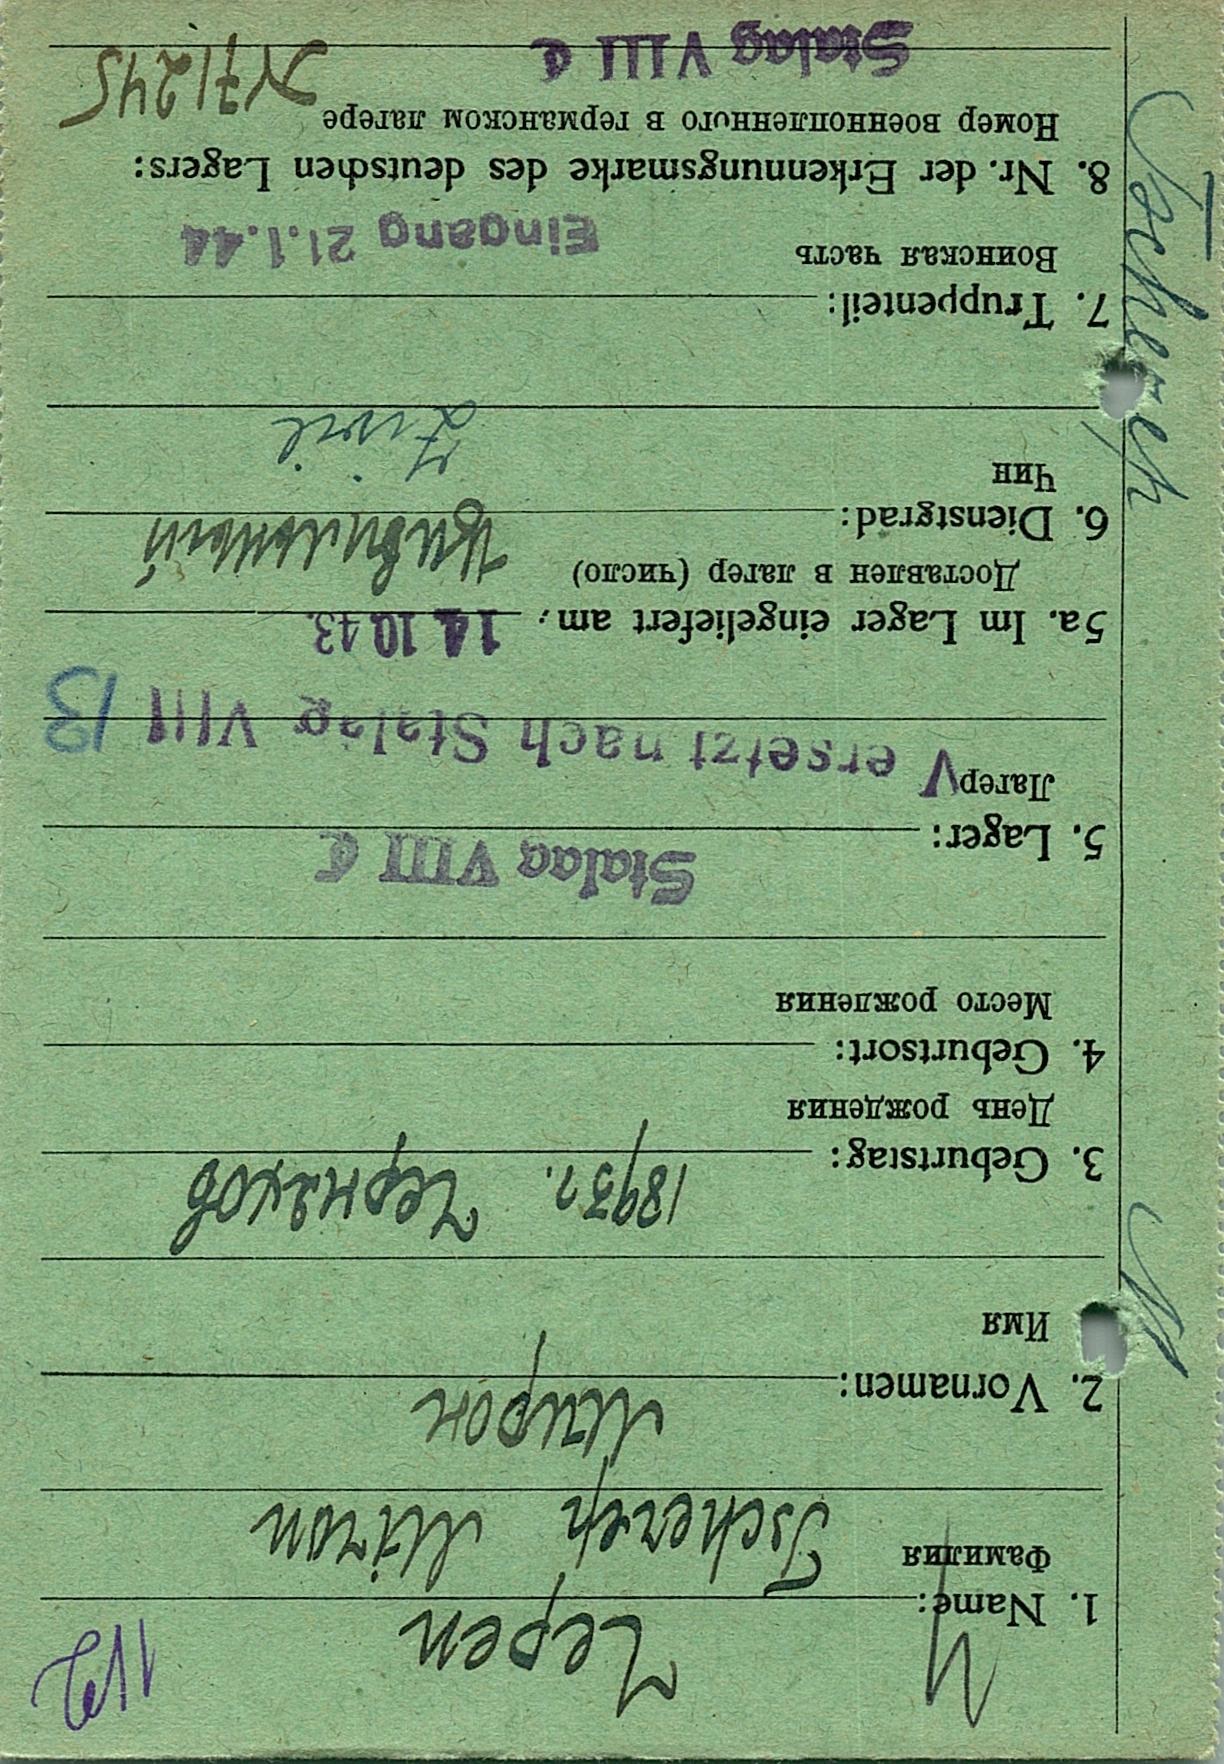 Ч
Черен
112
1. Name:
Фамилия
Tscherep Miron
Мирон
2. Vornamen:
Имя
3. Geburtstag: 1893г.
День рождения
4. Geburtsort:
Место рождения
Stalag VIII C
5. Lager:
Лагер
Versetzt nach Stalag VIII B
5a. Im Lager eingeliefert am: 14.10.43.
Доставлен в лагер (число)
6. Dienstgrad:
Чин
Zivil
7. Truppenteil:
Воинская часть
Eingang 21.1.44
8. Nr. der Erkennungsmarke des deutschen Lagers:
Номер военнопленного в германском лагере
Stalag VIII C
N 71245
Tscherep
M